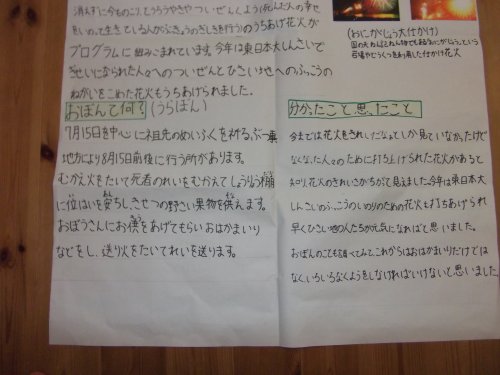 消えずに今ものこり、とうろうやきや ついぜんくよう(死んだ人の幸せ
をいのって生きている人がぶっきょうのぎしきを行う)のうちあげ花火が
プログラムに組みこまれています。今年は東日本大しんさいで
ぎせいになられた人々へのついぜんとひさい地へのふっこうの
ねがいをこめた花火もうちあげられました。
おぼんて何?(うらぼん)
7月15日を中心に祖先のめいふくを祈る、ぶつ事
地方により8月15日前後に行う所があります。
むかえ火をたいて死者のれいをむかえてしょうりょう棚
に位はいを安ちし、きせつの野さい果物を供えます。
おぼうさんにお供をあげてもらいおはかまいり
などをし、送り火をたいてれいを送ります。
(おにがじょう大仕かけ)
国の天ねんきねん物でも
岩場やどうくつを利用した仕かけ花火
分かったこと思ったこと
今までは花火をきれいだなぁとしか見ていなかったけど
なくなった人々のために打ち上げられた花火があると
知り、花火のきれいさがちがって見えました。今年は東日本大
しんさいのふっこうのいのりのための花火も打ちあげられ
早くひさい地の人たちが元気になればと思いました。
おぼんのことも調べてみて、これからはおはかまいりだけでは
なく、いろいろなくようをしなければいけないと思いました